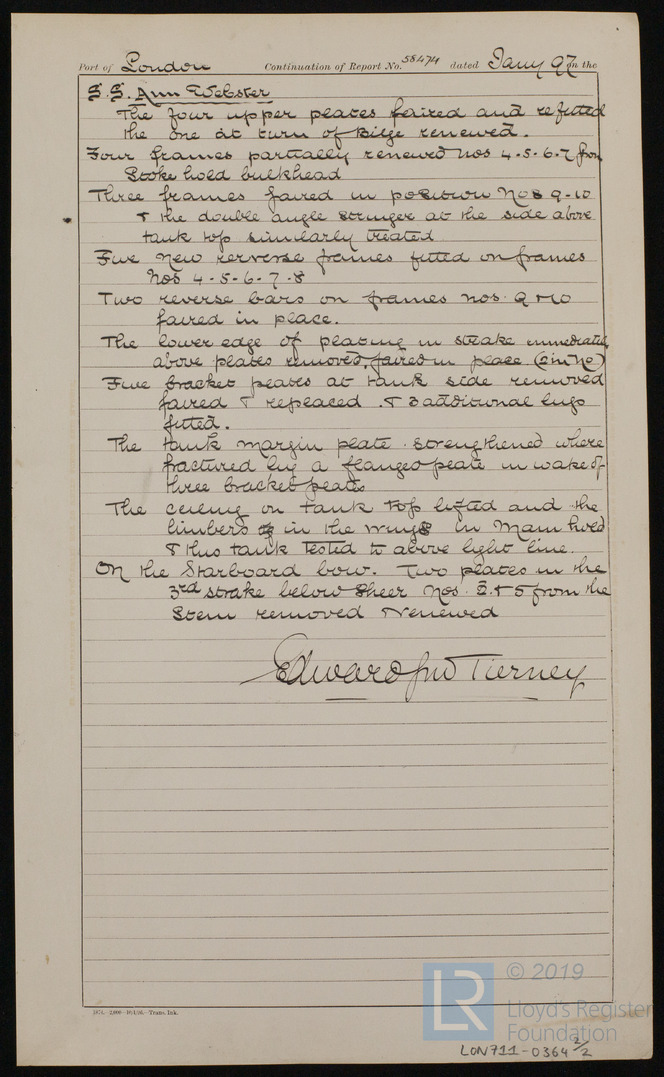 Port of London Continuation of Report No. 58474 dated Jany 97 on the
S.S. Ann Webster
The four upper plates faired and refitted
the one at turn of Bilge renewed.
Four frames partially renewed Nos 4-5-6-7 from
Stoke hold bulkhead
Three frames faired in position Nos 8 9-10
& the double angle stringer at the side above
tank top similarly treated
Five New reverse frames fitted on frames
Nos 4-5-6-7-8
Two reverse bars on frames nos. 9 & 10
faired in place.
The lower edge of plating in strake immediately
above plates removed, faired in place (2 in No)
Five bracket plates at tank side removed
faired & replaced. & 3 additional lugs
fitted.
The tank margin plate strengthened where
fractured by a flanged plate in wake of
three bracket plates
The ceiling on tank top lifted and the
limbers in the wings in Main hold
& this tank tested to above light line.
On the Starboard bow. Two plates in the
3rd strake below Sheer Nos. 2 & 5 from the
Stem removed & renewed
Edward Jno Tierney
© 2019
LR
Lloyd's Register
Foundation
LON711-0364 2/2